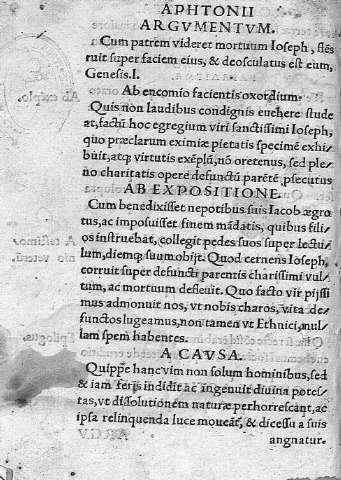 APHTONII
ARGVMENTVM.
Cum patrem videret mortuum Ioseph, flés
ruit super faciem eius, & deosculatus est eum,
Genesis.I.
Ab encomio facientis oxordium.
Quis non laudibus condignis euehere stude
at, factũ hoc egregium viri sanctissimi Ioseph,
quo præclarum eximiæ pietatis specimẽ exhi
buit, atq; virtutis exẽplũ, nõ oretenus, sed ple
no charitatis opere defunctũ parẽtẽ ꝓsecutus
AB EXPOSITIONE.
Cum benedixisset nepotibus suis Iacob ægro
tus, ac imposuisset finem mãdatis, quibus fili
os instruebat, collegit pedes suos super lectu
lum, diemq; suum obijt. Quod cernens Ioseph,
corruit super defuncti parentis charissimi vul
tum, ac mortuum defleuit. Quo facto vir pijssi
mus admonuit nos, vt nobis charos, vita de
functos lugeamus, non tamen vt Ethnici, nul
lam spem habentes.
A CAVSA.
Quippe hanc vim non solum hominibus, sed
& iam feris indidit ac ingenuit diuina potes
tas, vt dissolutionem naturæ perhorrescant, ac
ipsa relinquenda luce moueãt, & dicessu a suis
angnatur.